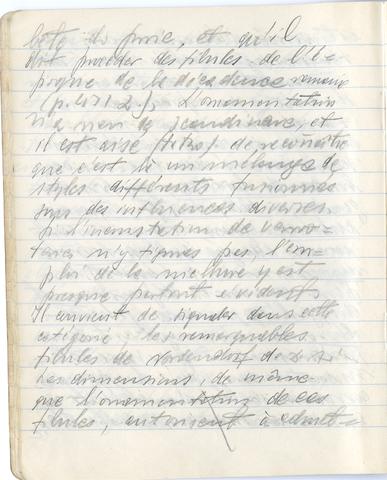 bête de proie, et qu'il
doit procéder des fibules de l'é-
poque de la décadence romaine
(p. 471 2.). L'ornementation
n'a rien de scandinave, et
il est aisé de reconnaître
que c'est là un mélange de
styles différents
sous des influences diverses.
Si l'incrustation de verro-
teries n'y figure pas, l'em-
ploi de la niellure y est
presque partout évident.
Il convient de signaler dans cette
catégorie, les remarquables
fibules de Nordendorf de
Les dimensions, de même
que l'ornementation de ces
fibules, autorisent à admet-